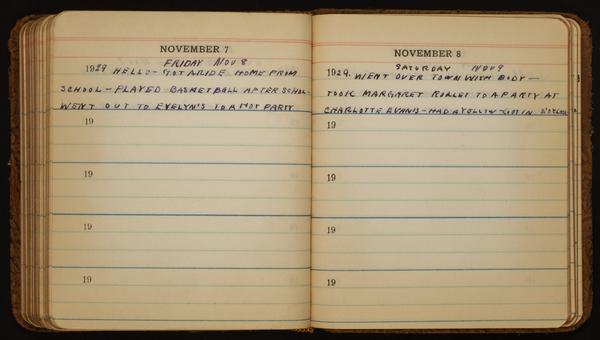 NOVEMBER 7
FRIDAY NOV 8
1929 HELLO - GOT A RIDE HOME FROM
SCHOOL - PLAYED BASKETBALL AFTER SCHOOL
WENT OUT TO EVELYN'S TO A HOT PARTY
19
19
19
19
NOVEMBER 8
SATURDAY NOV 9
1929. WENT OVER TOWN WITH BUDY -
TOOK MARGARET TO A PARTY AT
CHARLOTTE EVANS - HAD A YELLOW IN
19
19
19
19